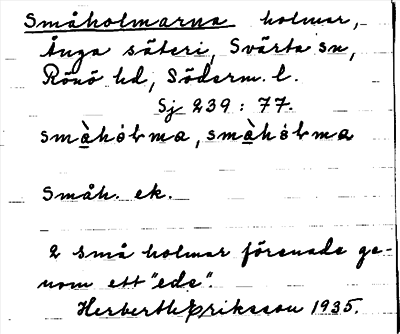 Småholmarna holmar,
Ånga säteri, Svärta sn,
Rönö hd, Söderm. l.
Sj 239 : 77.
småhòlma, småhòlma
Småh. ek.
2 små holmar förenade ge-
nom ett "ede".
Herbert Eriksson 1935.